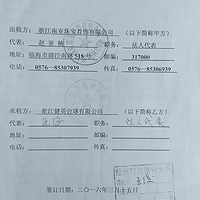 出租方：浙江南亚珠宝首饰有限公司（以下简称甲方）
代表：赵亚楠 职务：法人代表
地址：临海市靖江南路518号 邮编：317000
电话：0576—85307939 传真：0576—85306939
承租方：浙江健英台球有限公司（以下简称乙方）
代表： 职务：法人代表
地址： 邮编：
电话： 传真：
签订日期：二〇一六年三月十五日